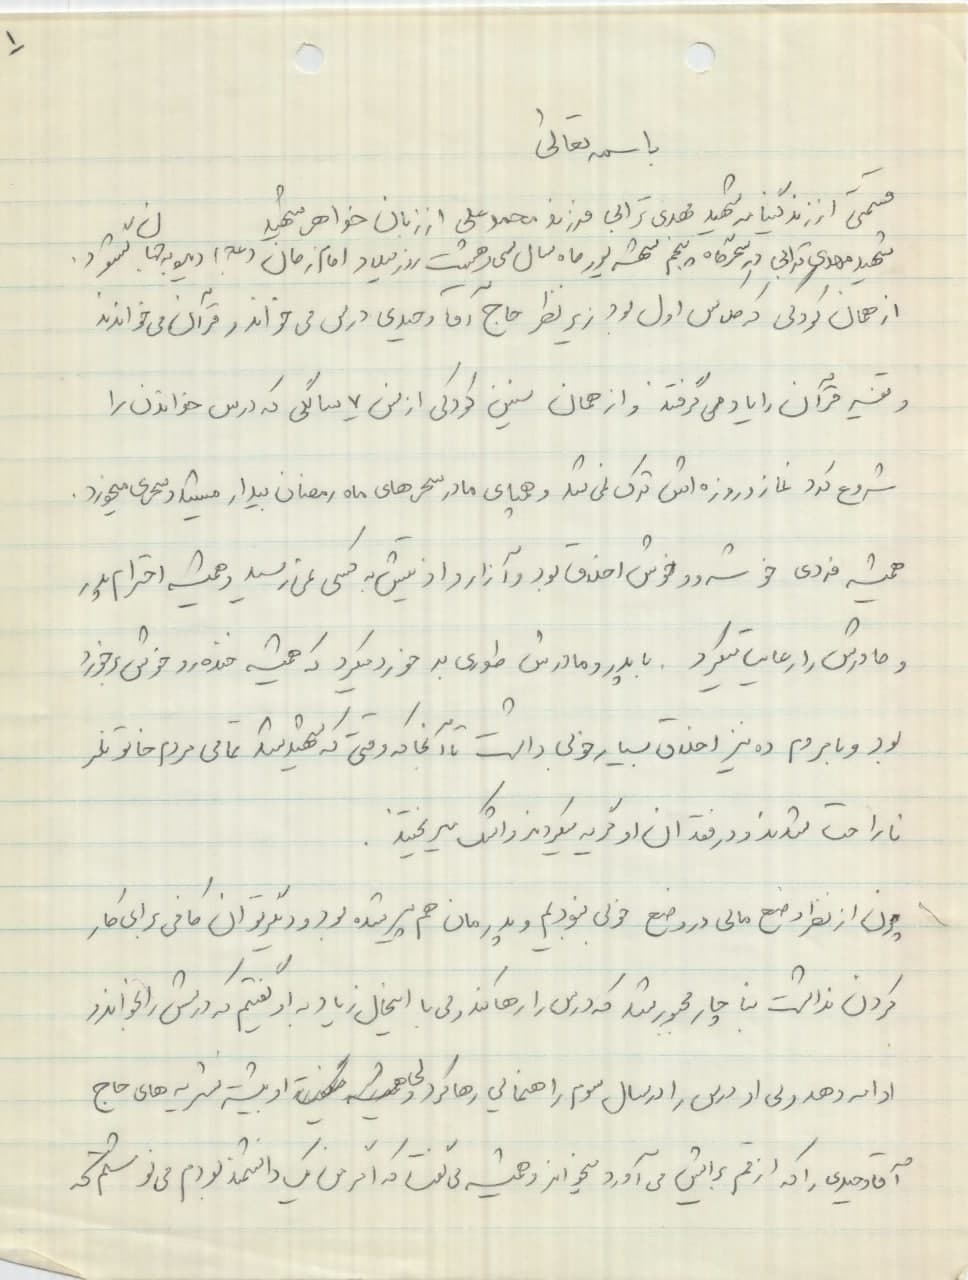 ۱
باسمه تعالی
قسمتی از زندگینامه شهید مهدی ترابی فرزند محمدعلی از زبان خواهر شهید
شهید مهدی ترابی در سحرگاه پنجم شهریور ماه سال سی و هشت روز میلاد امام زمان (عج) دیده به جهان گشود.
از همان کودکی که کلاس اول بود زیر نظر حاج آقا وحیدی درس می خواند و قرآن می خواندند
و تفسیر قرآن را یاد می گرفتند و از همان سنین کودکی از سن ۷ سالگی که درس خواندن را
شروع کرد نماز و روزه اش ترک نمی شد و همپای مادر سحرهای ماه رمضان بیدار میشد و سحری میخورد.
همیشه فردی خوشرو و خوش اخلاق بود و آزار و اذیتش به کسی نمی رسید و همیشه احترام پدر
و مادرش را رعایت میکرد . با پدر و مادرش طوری برخورد میکرد که همیشه خنده رو و خوش برخورد
بود و با مردم ده نیز اخلاق بسیار خوبی داشت تا آنجا که وقتی که شهید شد تمامی مردم
ناراحت شدند و در فقدان او گریه میکردند و اشک میریختند .
چون از نظر وضع مالی در وضع خوبی نبودیم و پدرمان هم پیر شده بود و دیگر توان کافی برای کار
کردن نداشت بناچار مجبور شد که درس را رها کند ولی با اینحال زیاد به او گفتیم که درسش را بخواند و
ادامه دهد ولی او درس را در سال سوم راهنمائی رها کرد ولی همیشه او بیشتر نشریه های حاج
آقا وحیدی را که از قم برایش می آورد میخواند و همیشه می گفت که اگر من یک دانشمند بودم می نوشتم که